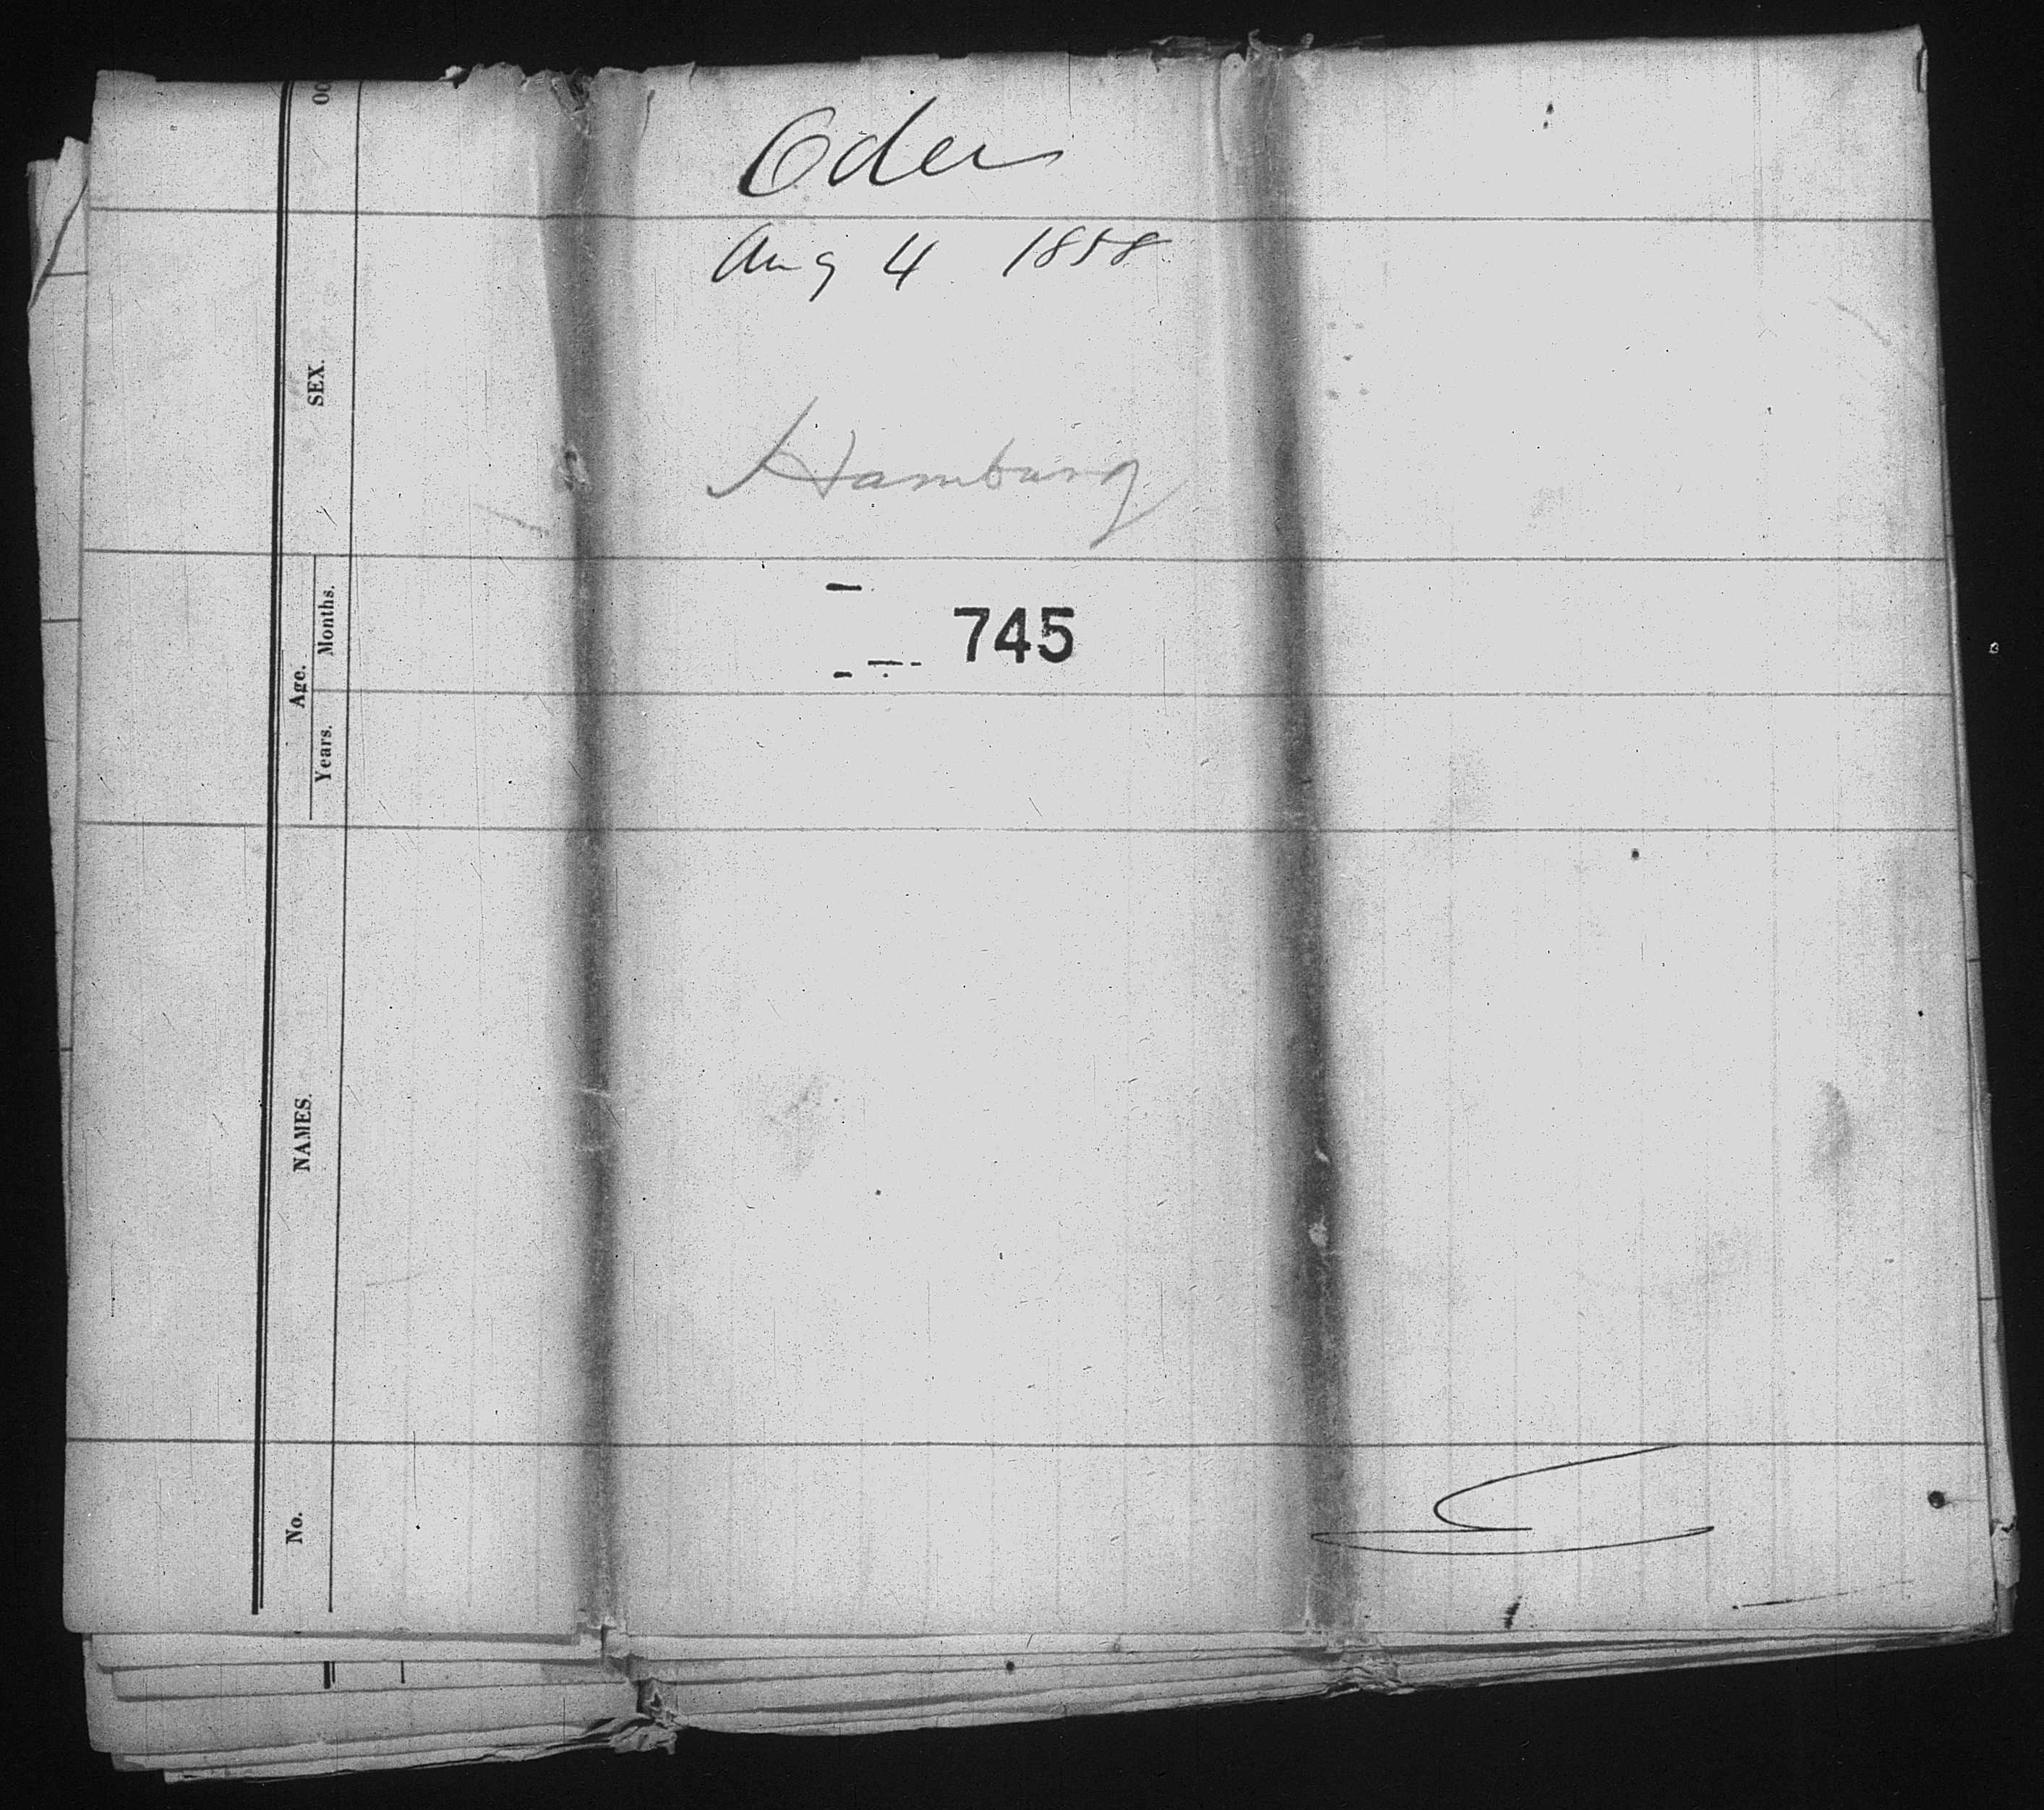 Oder
Aug 4 1858
Hamburg
745
OC
SEX.
Age.
Months.
Years.
NAMES.
No.